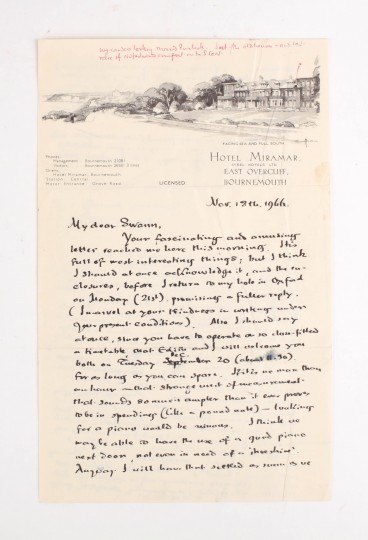 My window looking towards
FACING SEA AND FULL SOUTH
Phones:
Management: Bournemouth
Visitors: Bournemouth
Grams:
Hotel Miramar, Bournemouth
Station: Central
Motor Entrance: Grove Road.
LICENSED
HOTEL MIRAMAR
EAST OVERCLIFF,
BOURNEMOUTH
Nov. 18th, 1966.
My dear Swann,
Your fascinating and amusing
letter reached me here this morning. It is
full of most interesting things; but I think
I should at once acknowledge it, and the en-
closures, before I return to my hole in Oxford
on Monday (21st), promising a fuller reply.
(I marvel at your kindness in writing under
your present conditions). Also I should say
at once, since you have to operate on so close-filled
a timetable that Edith and I will welcome you
both on Tuesday Dec. September 20 (about 11.30).
for as long as you can spare. If it is no more than
an hour – that strange unit of measurement
that sounds so much ampler than it ever proves
to be in spending (like a pound note) – looking
for a piano would be ruinous. I think we
may be able to have the use of a good piano
next door, not even in need of a
Anyway I will have that settled as soon as we